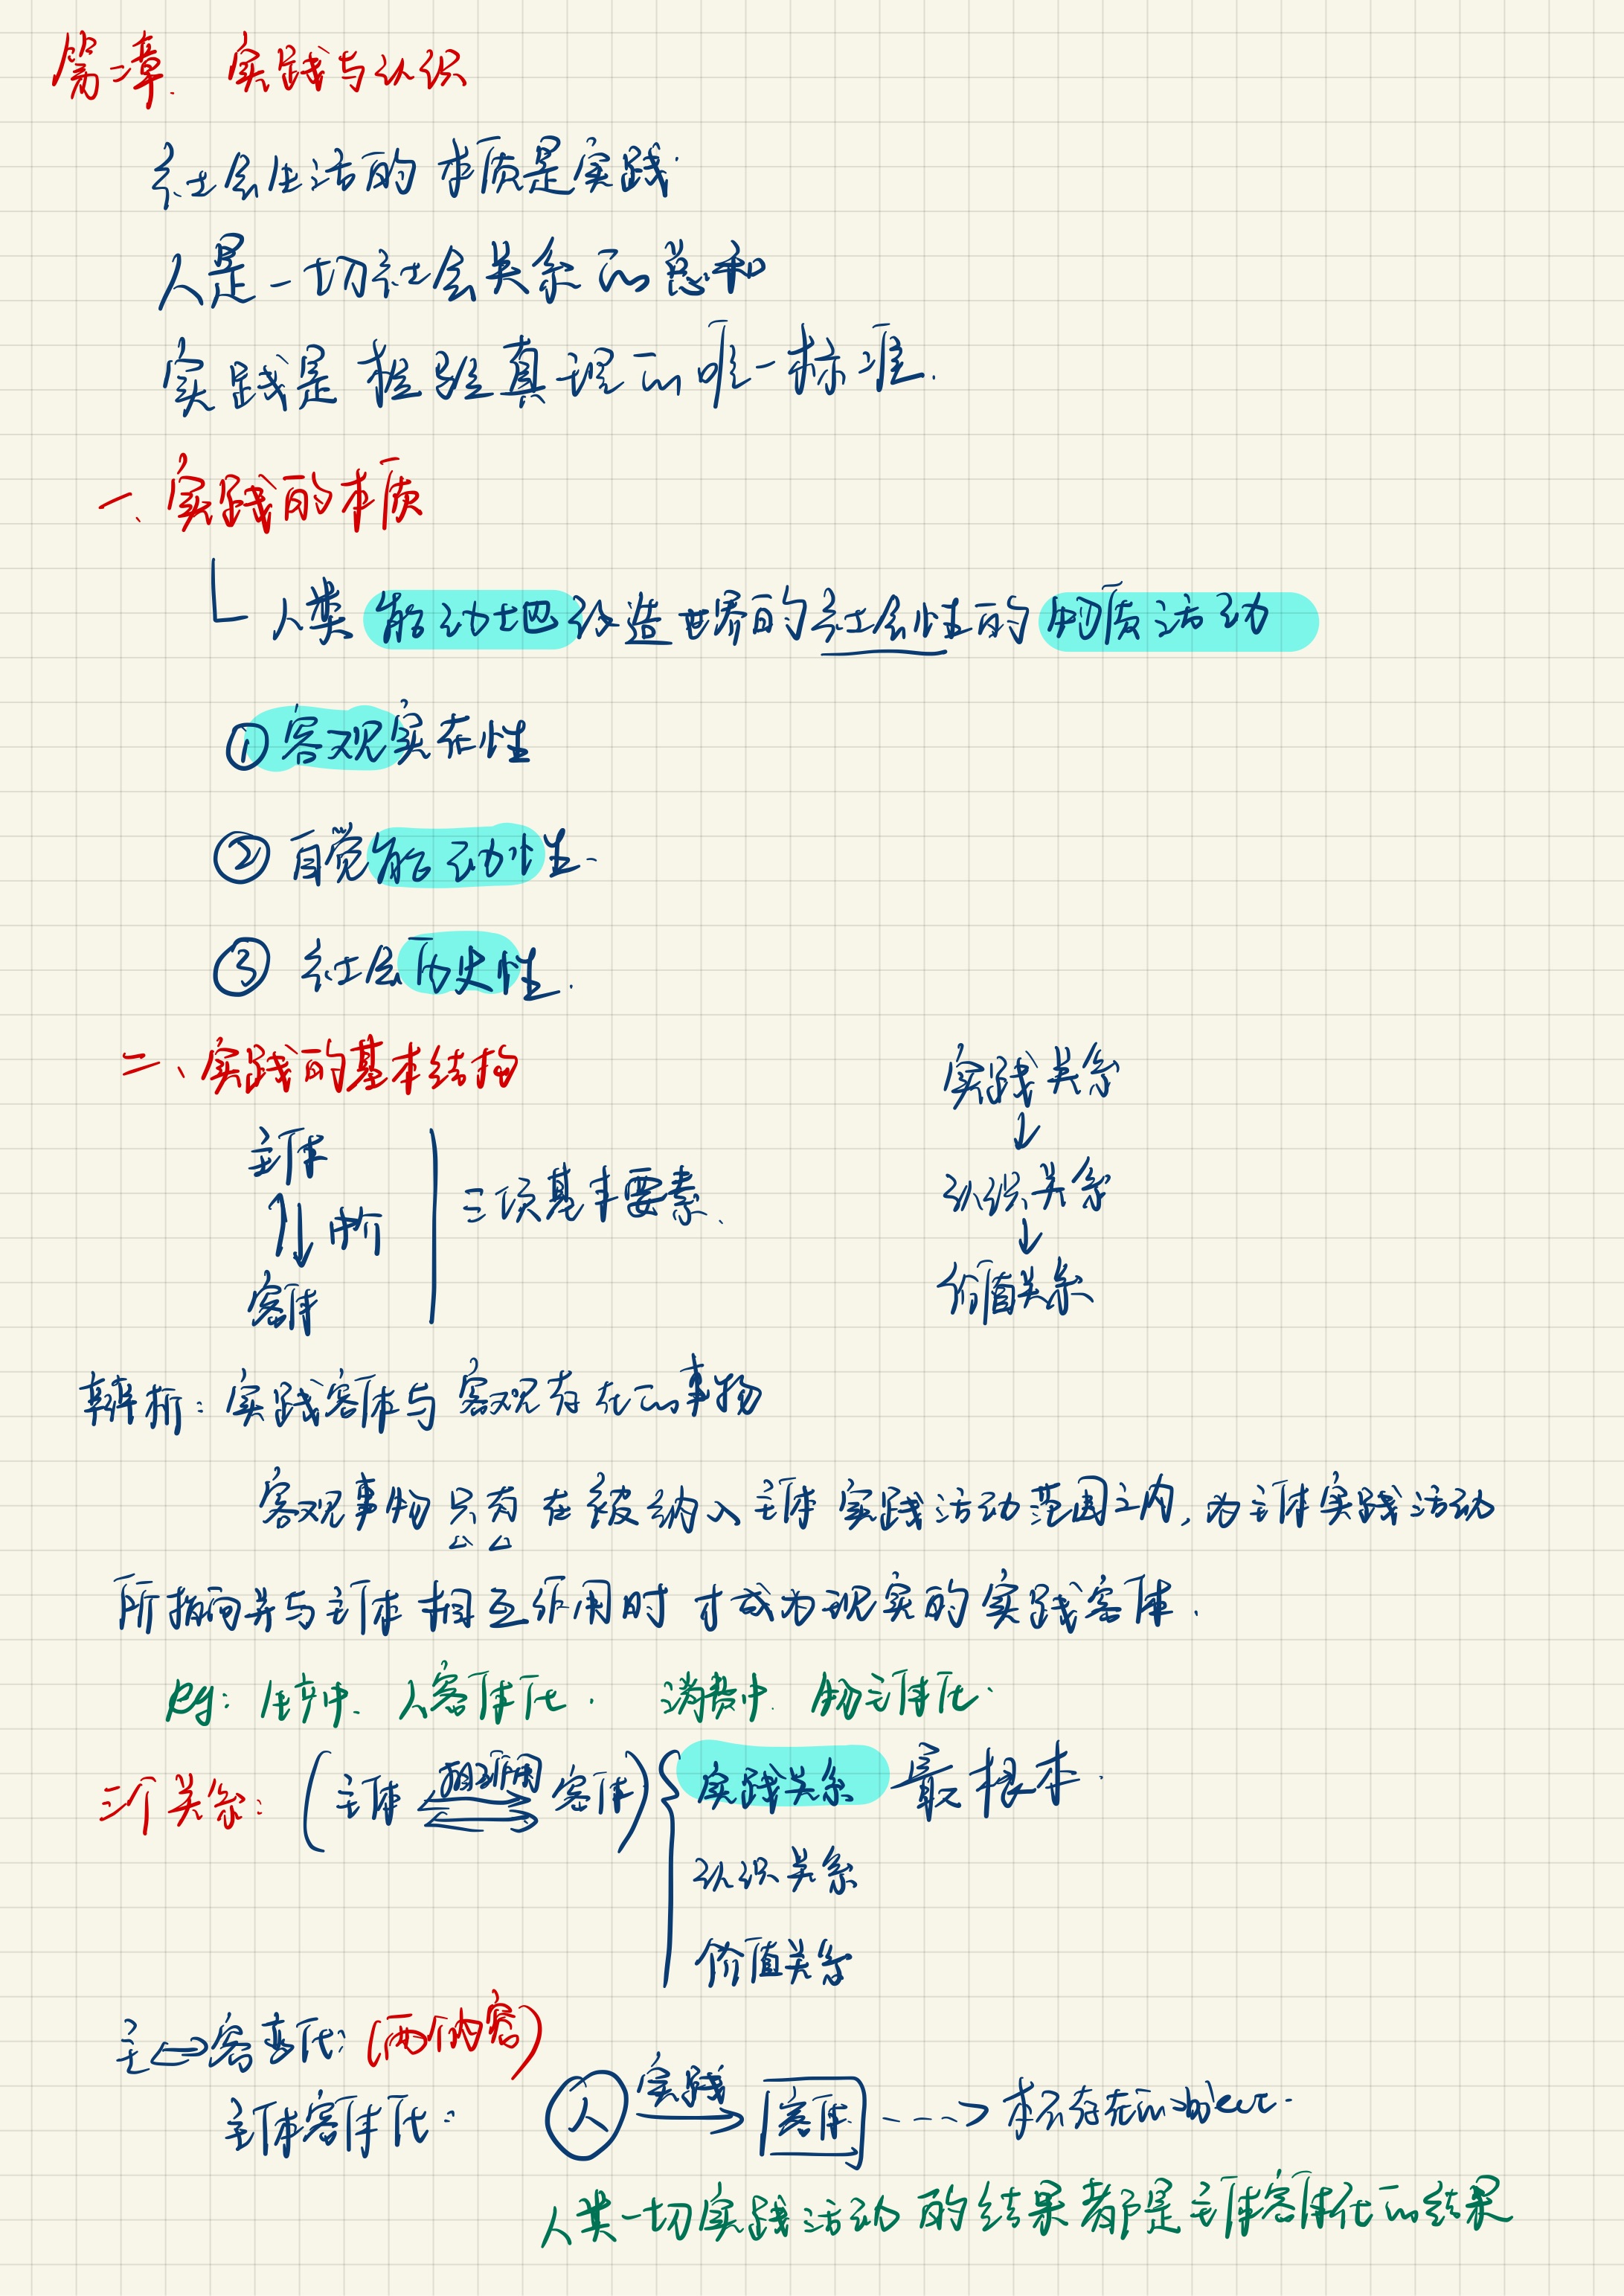 第二章. 实践与认识
社会生活的本质是实践.
人是一切社会关系的总和
实践是检验真理的唯一标准.
一、实践的本质
人类能动地改造世界的社会性的物质活动
① 客观实在性
② 自觉能动性.
③ 社会历史性.
二、实践的基本结构
主体
中介
客体
三项基本要素.
实践关系
↓
认识关系
↓
价值关系
辨析: 实践客体与客观存在的事物
客观事物只有在被纳入主体实践活动范围之内, 为主体实践活动
所指向并与主体相互作用时才成为现实的实践客体.
eg: 生产中. 人客体化. 消费中. 物主体化.
三个关系: (主体 相互作用 客体) { 实践关系 最根本.
认识关系
价值关系
主⇔客变化: (两个内容)
主体客体化: 人 实践→ 客体 ---> 本不存在的
人类一切实践活动的结果都是主体客体化的结果